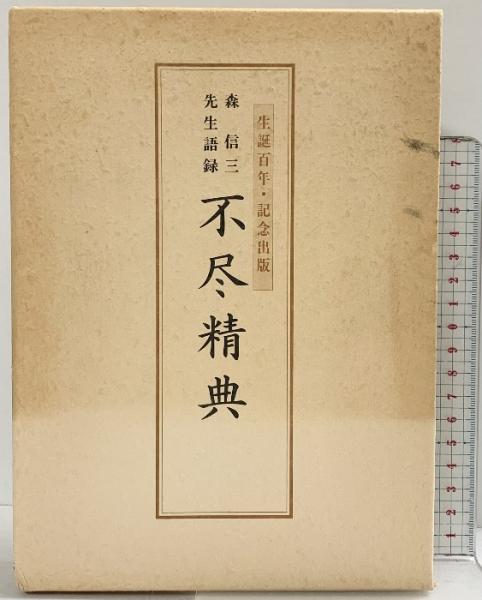 生誕百年・記念出版
森信三
先生語録
不尽精典